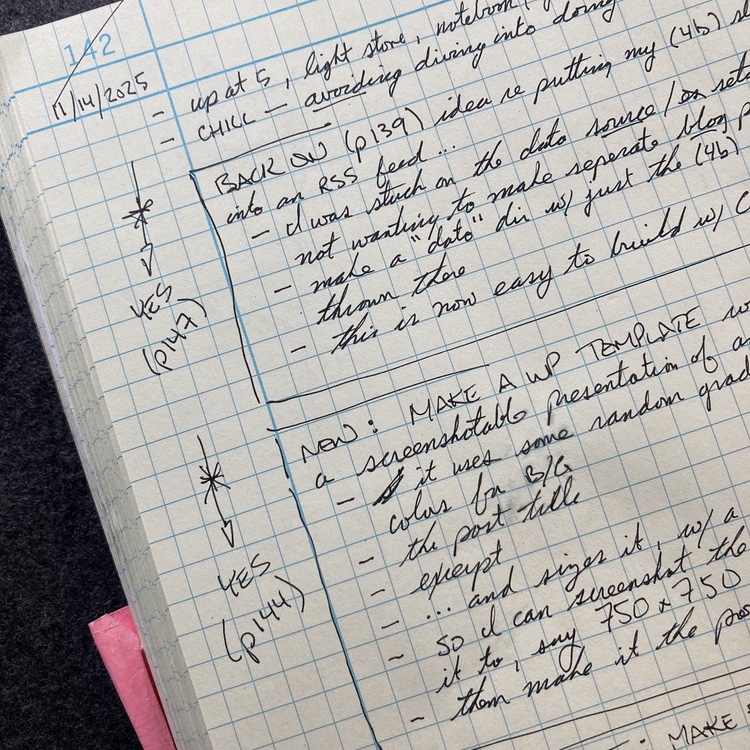 142
11/14/2025
- up at 5, light stove, notebook,
- CHILL — avoiding diving into doing
BACK ON (p139) idea re putting my (4b)
into an RSS feed...
- I was stuck on the data source/
not wanting to make seperate blog
- make a "data" dir w/ just the (4b)
thrown there
- this is now easy to build w/
YES
(p147)
NEW: MAKE A WP TEMPLATE
a screenshotable presentation of a
- it uses some random
colors for B/G
- the post title
- excerpt
- ... and sizes it, w/ a
- so I can screenshot the
it to, say 750 x 750
- then make it the
YES
(p144)
: MAKE